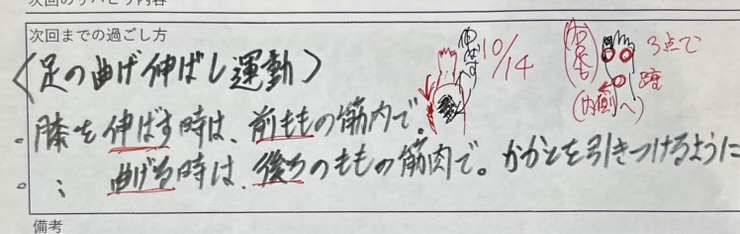 次回のリハビリ内容
次回までの過ごし方
〈足の曲げ伸ばし運動〉
伸ばす
10/14
3点で
(内側へ)
。膝を伸ばす時は、前ももの筋肉で。
。〃 曲げる時は、後ろのももの筋肉で。かかとを引きつけるように
備考